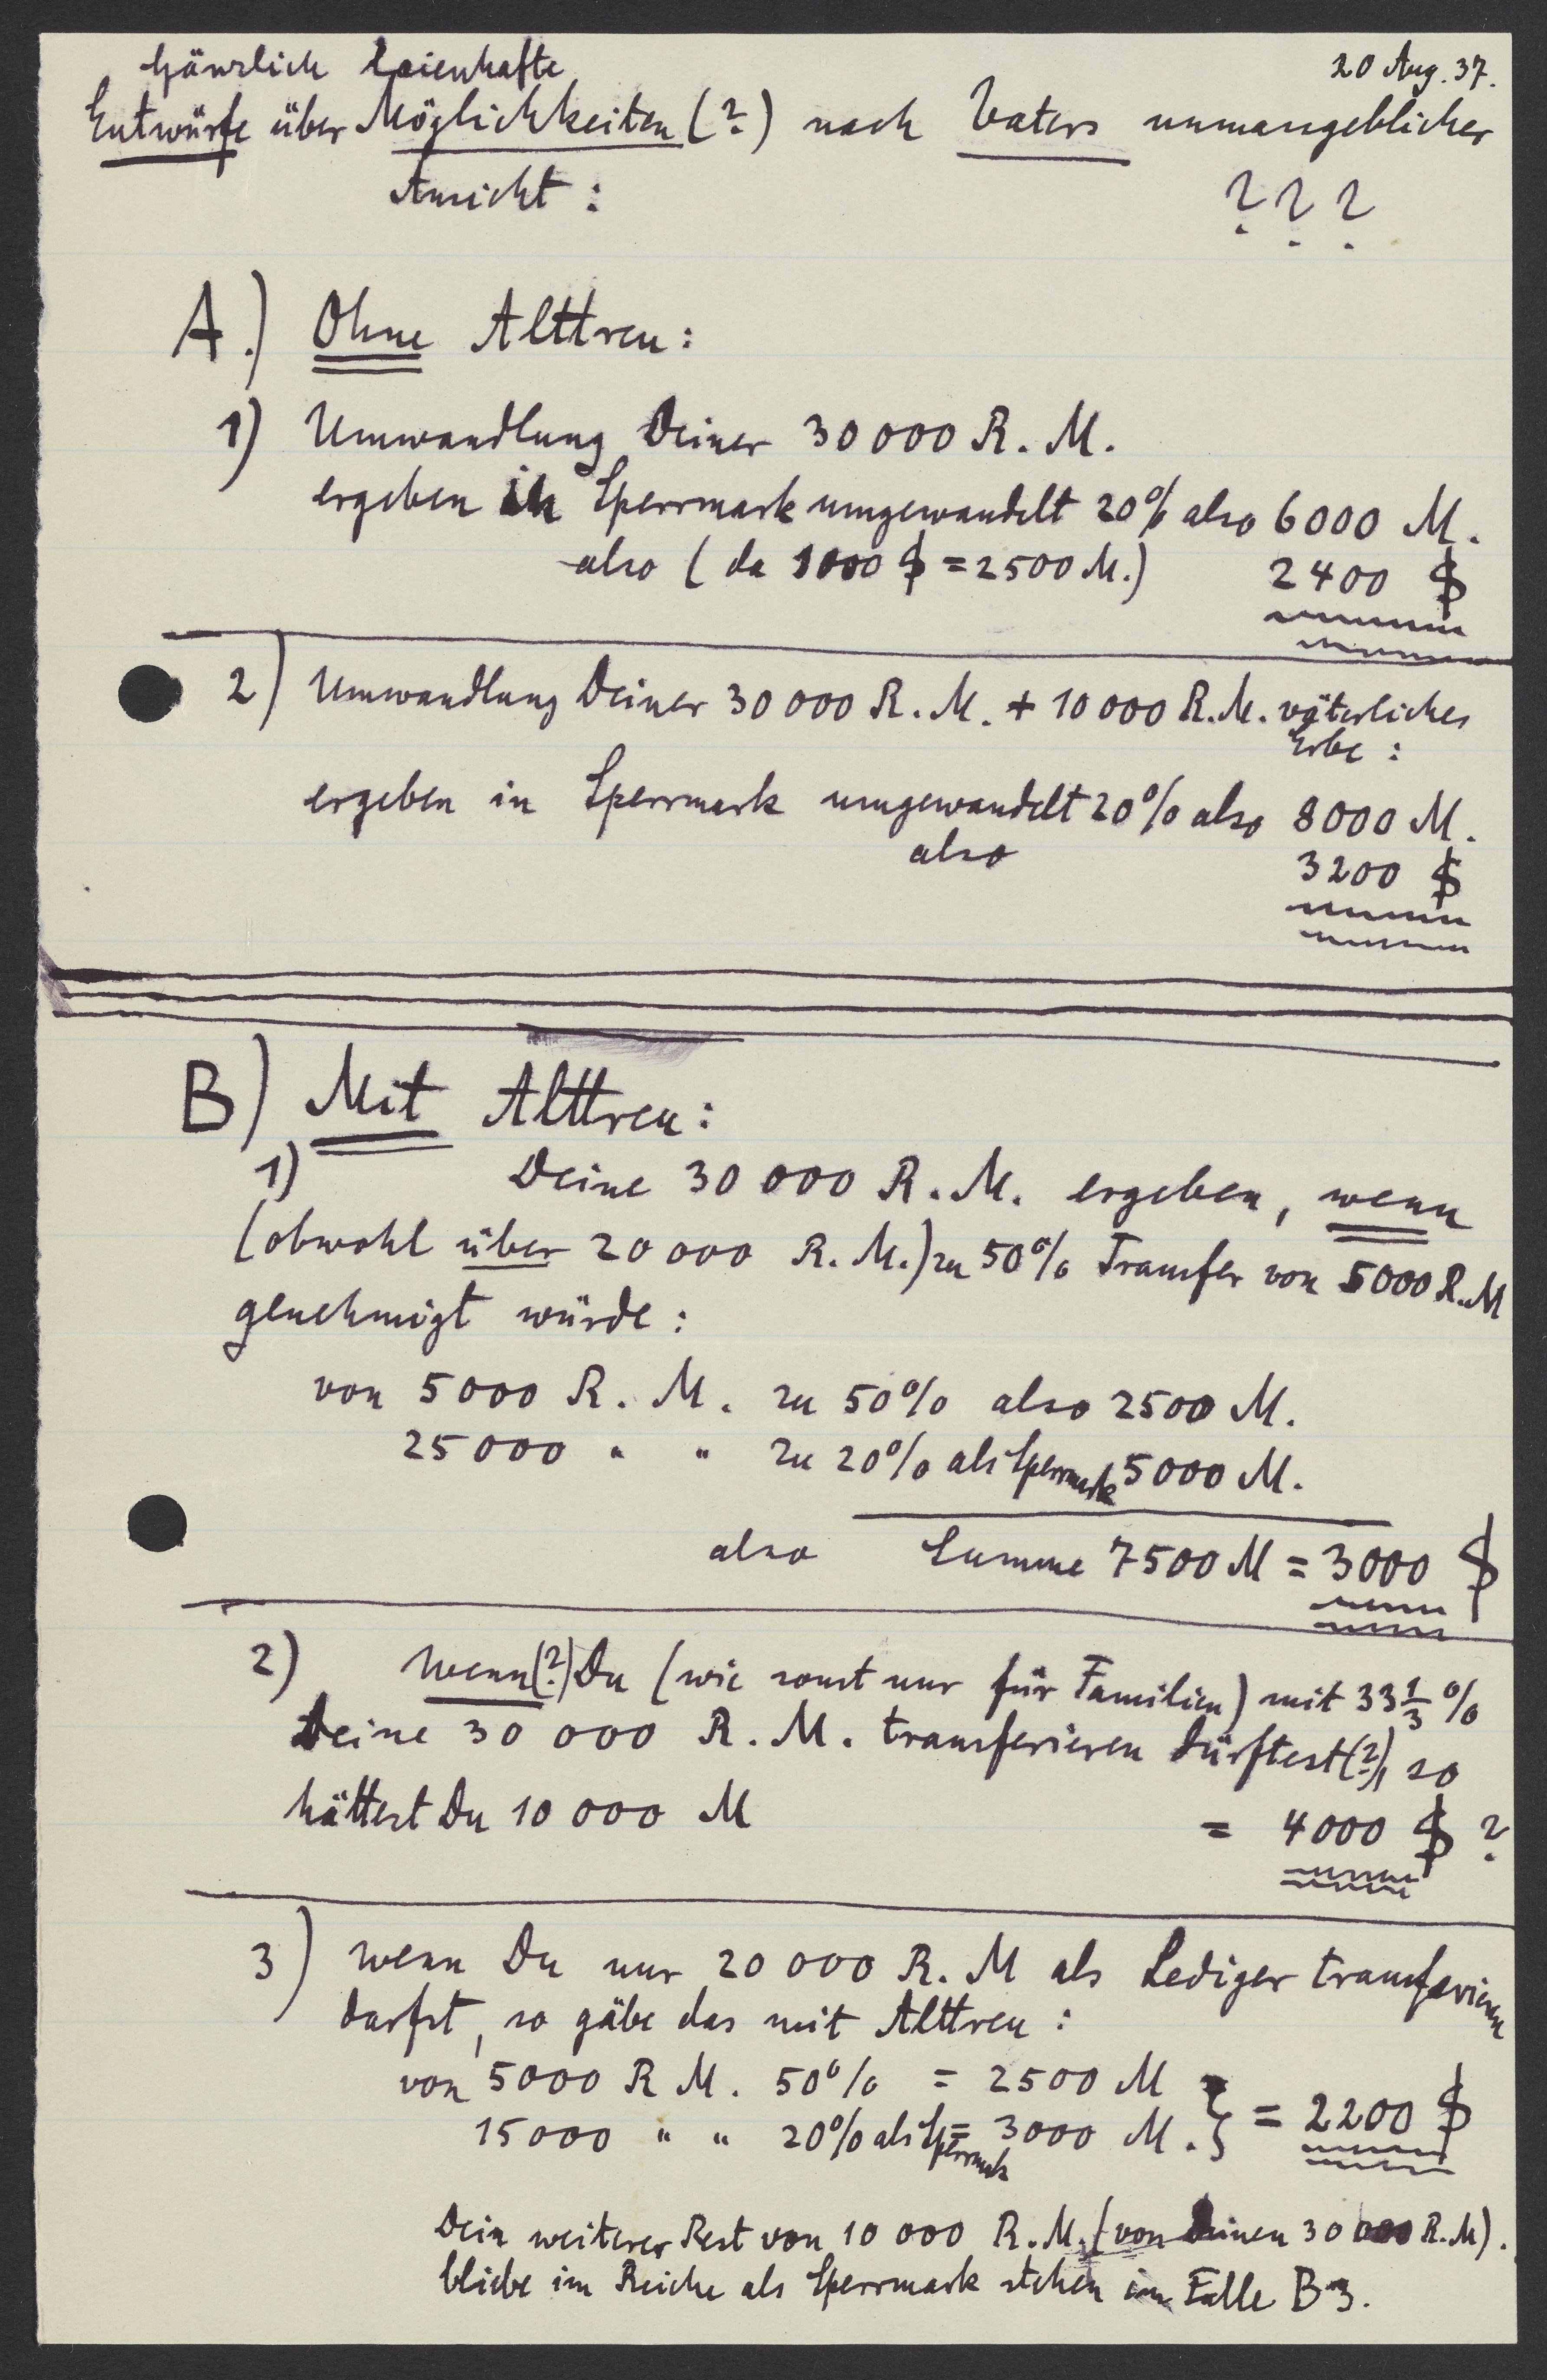 20 Aug. 37.
Gänzlich laienhafte
Entwürfe über Möglichkeiten (?) nach Vaters unmassgeblicher
Ansicht :
? ? ?
A.) Ohne Alttreu :
1) Umwandlung Deiner 30 000 R. M.
ergeben in Sperrmark umgewandelt 20% also 6000 M.
also ( da 1000 $ = 2500 M.) 2400 $
2) Umwandlung Deiner 30 000 R. M. + 10 000 R. M. väterliches
Erbe :
ergeben in Sperrmark umgewandelt 20% also 8000 M.
also 3200 $
B) Mit Alttreu :
1) Deine 30 000 R. M. ergeben, wenn
(obwohl über 20 000 R. M.) zu 50% Transfer von 5000 R. M
genehmigt würde :
von 5000 R. M. zu 50% also 2500 M.
25 000 " " zu 20% als Sperrmark 5000 M.
also Summe 7500 M = 3000 $
2) Wenn(?) Du (wie sonst nur für Familien) mit 33 1/3 %
Deine 30 000 R. M. transferieren dürftest(?), so
hättest Du 10 000 M = 4000 $ ?
3) wenn Du nur 20 000 R. M als Lediger transferieren
darfst, so gäbe das mit Alttreu :
von 5000 R M. 50% = 2500 M } = 2200 $
15 000 " " 20% als Sperrmark = 3000 M.
Dein weiterer Rest von 10 000 R. M. (von Deinen 30 000 R. M).
bliebe im Reiche als Sperrmark stehen im Falle B 3.